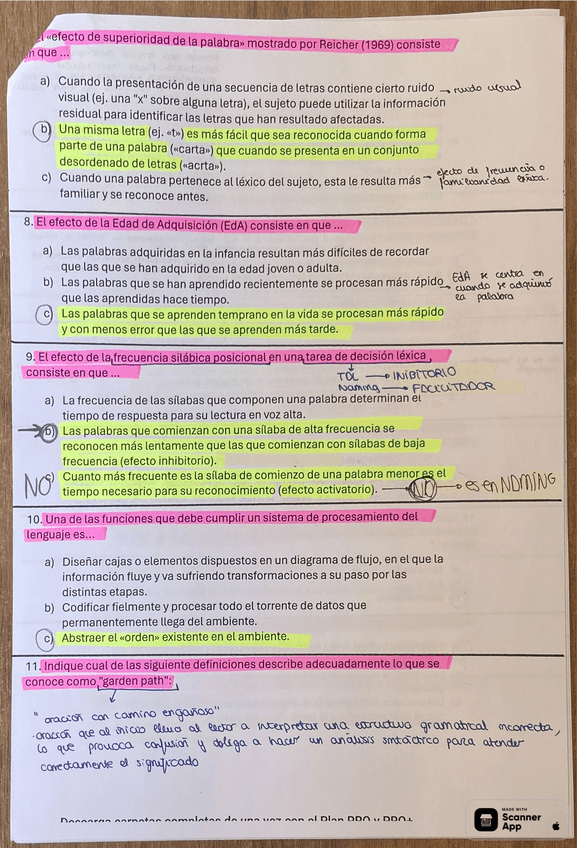 «efecto de superioridad de la palabra» mostrado por Reicher (1969) consiste
en que ...
a) Cuando la presentación de una secuencia de letras contiene cierto ruido → ruido visual
visual (ej. una "x" sobre alguna letra), el sujeto puede utilizar la información
residual para identificar las letras que han resultado afectadas.
b) Una misma letra (ej. «t») es más fácil que sea reconocida cuando forma
parte de una palabra («carta») que cuando se presenta en un conjunto
desordenado de letras («acrta»).
c) Cuando una palabra pertenece al léxico del sujeto, esta le resulta más → efecto de frecuencia o
familiar y se reconoce antes. familiaridad léxica.
8. El efecto de la Edad de Adquisición (EdA) consiste en que ...
a) Las palabras adquiridas en la infancia resultan más difíciles de recordar
que las que se han adquirido en la edad joven o adulta.
b) Las palabras que se han aprendido recientemente se procesan más rápido → EdA se centra en
que las aprendidas hace tiempo. cuando se adquirió
la palabra
c) Las palabras que se aprenden temprano en la vida se procesan más rápido
y con menos error que las que se aprenden más tarde.
9. El efecto de la frecuencia silábica posicional en una tarea de decisión léxica,
consiste en que ...
TDL → INIBITORIO
Naming → FACILITADOR
a) La frecuencia de las sílabas que componen una palabra determinan el
tiempo de respuesta para su lectura en voz alta.
b) Las palabras que comienzan con una sílaba de alta frecuencia se
reconocen más lentamente que las que comienzan con sílabas de baja
frecuencia (efecto inhibitorio).
NO c) Cuanto más frecuente es la sílaba de comienzo de una palabra menor es el
tiempo necesario para su reconocimiento (efecto activatorio). → NO → es en NAMING
10. Una de las funciones que debe cumplir un sistema de procesamiento del
lenguaje es...
a) Diseñar cajas o elementos dispuestos en un diagrama de flujo, en el que la
información fluye y va sufriendo transformaciones a su paso por las
distintas etapas.
b) Codificar fielmente y procesar todo el torrente de datos que
permanentemente llega del ambiente.
c) Abstraer el «orden» existente en el ambiente.
11. Indique cual de las siguiente definiciones describe adecuadamente lo que se
conoce como "garden path":
"oración con camino engañoso"
oración que al inicio lleva al lector a interpretar una estructura gramatical incorrecta,
lo que provoca confusión y obliga a hacer un análisis sintáctico para atender
correctamente el significado
MADE WITH
Scanner
App